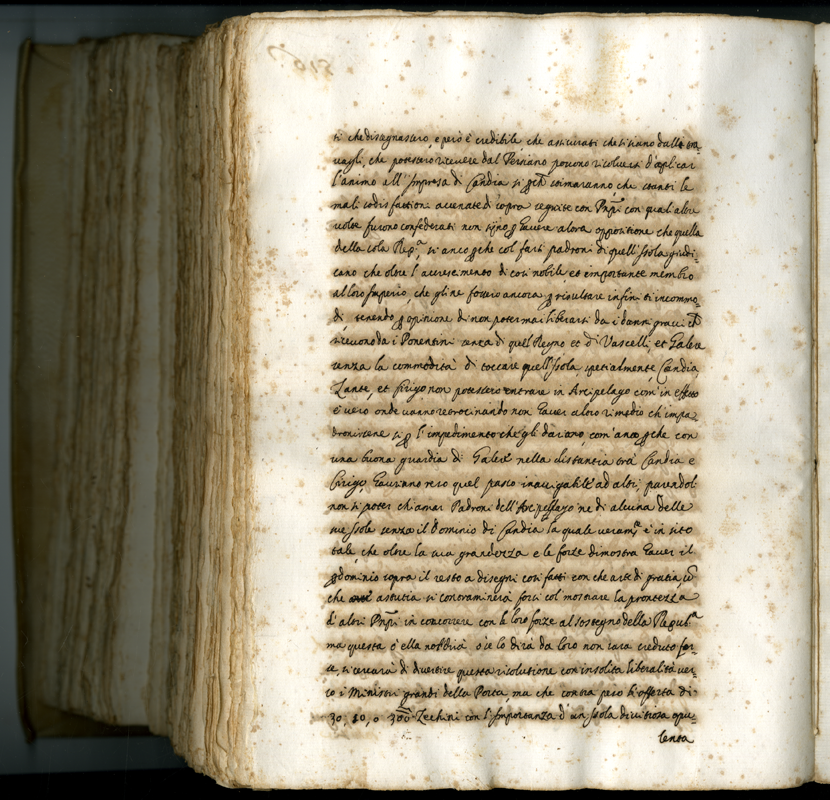 ti che disegnassero, e però è credibile che assicurati che siano dalli tra
uagli, che potessero riceuere dal Persiano possono risoluersi d'applicar
l'animo all'Impresa di Candia si che stimaranno, che stanti le
male sodisfattioni accenate di sopra seguite con Pnpi con quali altre
uolte furono confederati non siano hauere alora oppositione che quella
della sola Rep.ca, si anco che col farsi padroni di quell'Isola giudi=
cano che oltre l'accrescimento di così nobile, et importante membro
al loro Imperio, che gli ne fossero ancora risultare infiniti incommo=
di, tenendo opinione di non poter mai liberarsi da i danni graui ch
riceuono da i Ponentini senza di quel Regno et di Vascelli, et Galere
senza la commodità di toccare quell'Isola, spetialmente Candia
Zante, et Cirigo non potessero entrare in Arcipelago com'in effetto
è uero onde uanno non hauer a loro rimedio ch'impa=
dronirsene si l'impedimento che gli dariano, com'anco che con
una buona guardia di Galere nella distantia tra Candia e
Cirigo, hauranno reso quel passo inauigabile ad altri, parendoli
non si poter chiamar Padroni dell'Arcipelago ne di alcuna delle
sue Isole senza il Dominio di Candia la quale ueram.te è in sito
tale, che oltre la sua grandezza e le forze dimostra hauer il
dominio sopra il resto a disegni così fatti con che arte di gratia,
che astutia si contraminerà forsi col mostrare la prontezza
d'altri Pnpi in concorrere con le loro forze al sostegno della Repub.ca
ma questa ò ella non sarà creduta for
se, si cercarà di diuertire questa risolutione con insolita liberalità uer=
so i Ministri grandi della Porta ma che contra peso l'offerta di
30, 50, o 300 Zechini con l'Importanza d'un Isola diuitiosa opu
lenta